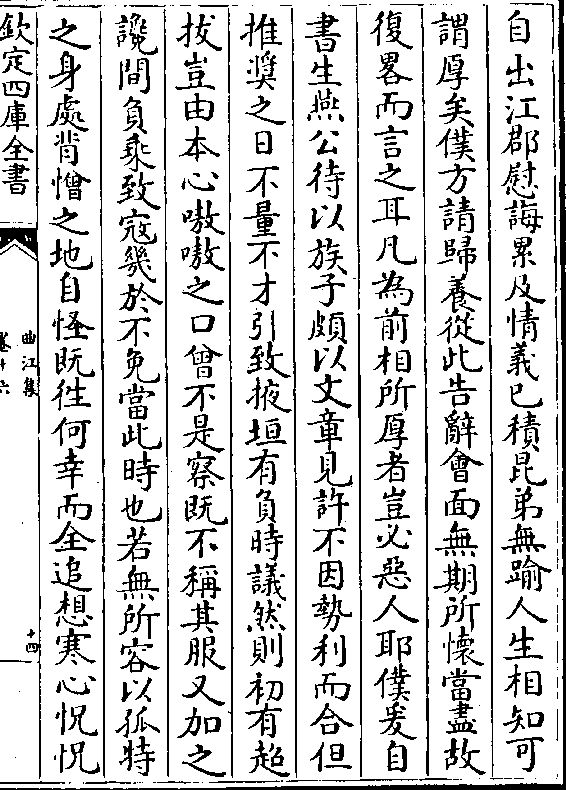 自出江郡慰誨累及情義已積昆弟無踰人生相知可
謂厚矣僕方請歸養從此告辭會面無期所懷當盡故
復畧而言之耳凡為前相所厚者豈必惡人耶僕爰自
書生燕公待以族子頗以文章見許不因勢利而合但
推奬之日不量不才引致掖垣有負時議然則初有超
拔豈由本心嗷嗷之口曾不是察既不稱其服又加之
讒間負乘致寇幾於不免當此時也若無所容以孤特
之身處背憎之地自怪既往何幸而全追想寒心怳怳
欽定四庫全書
曲江集
卷十六
十四